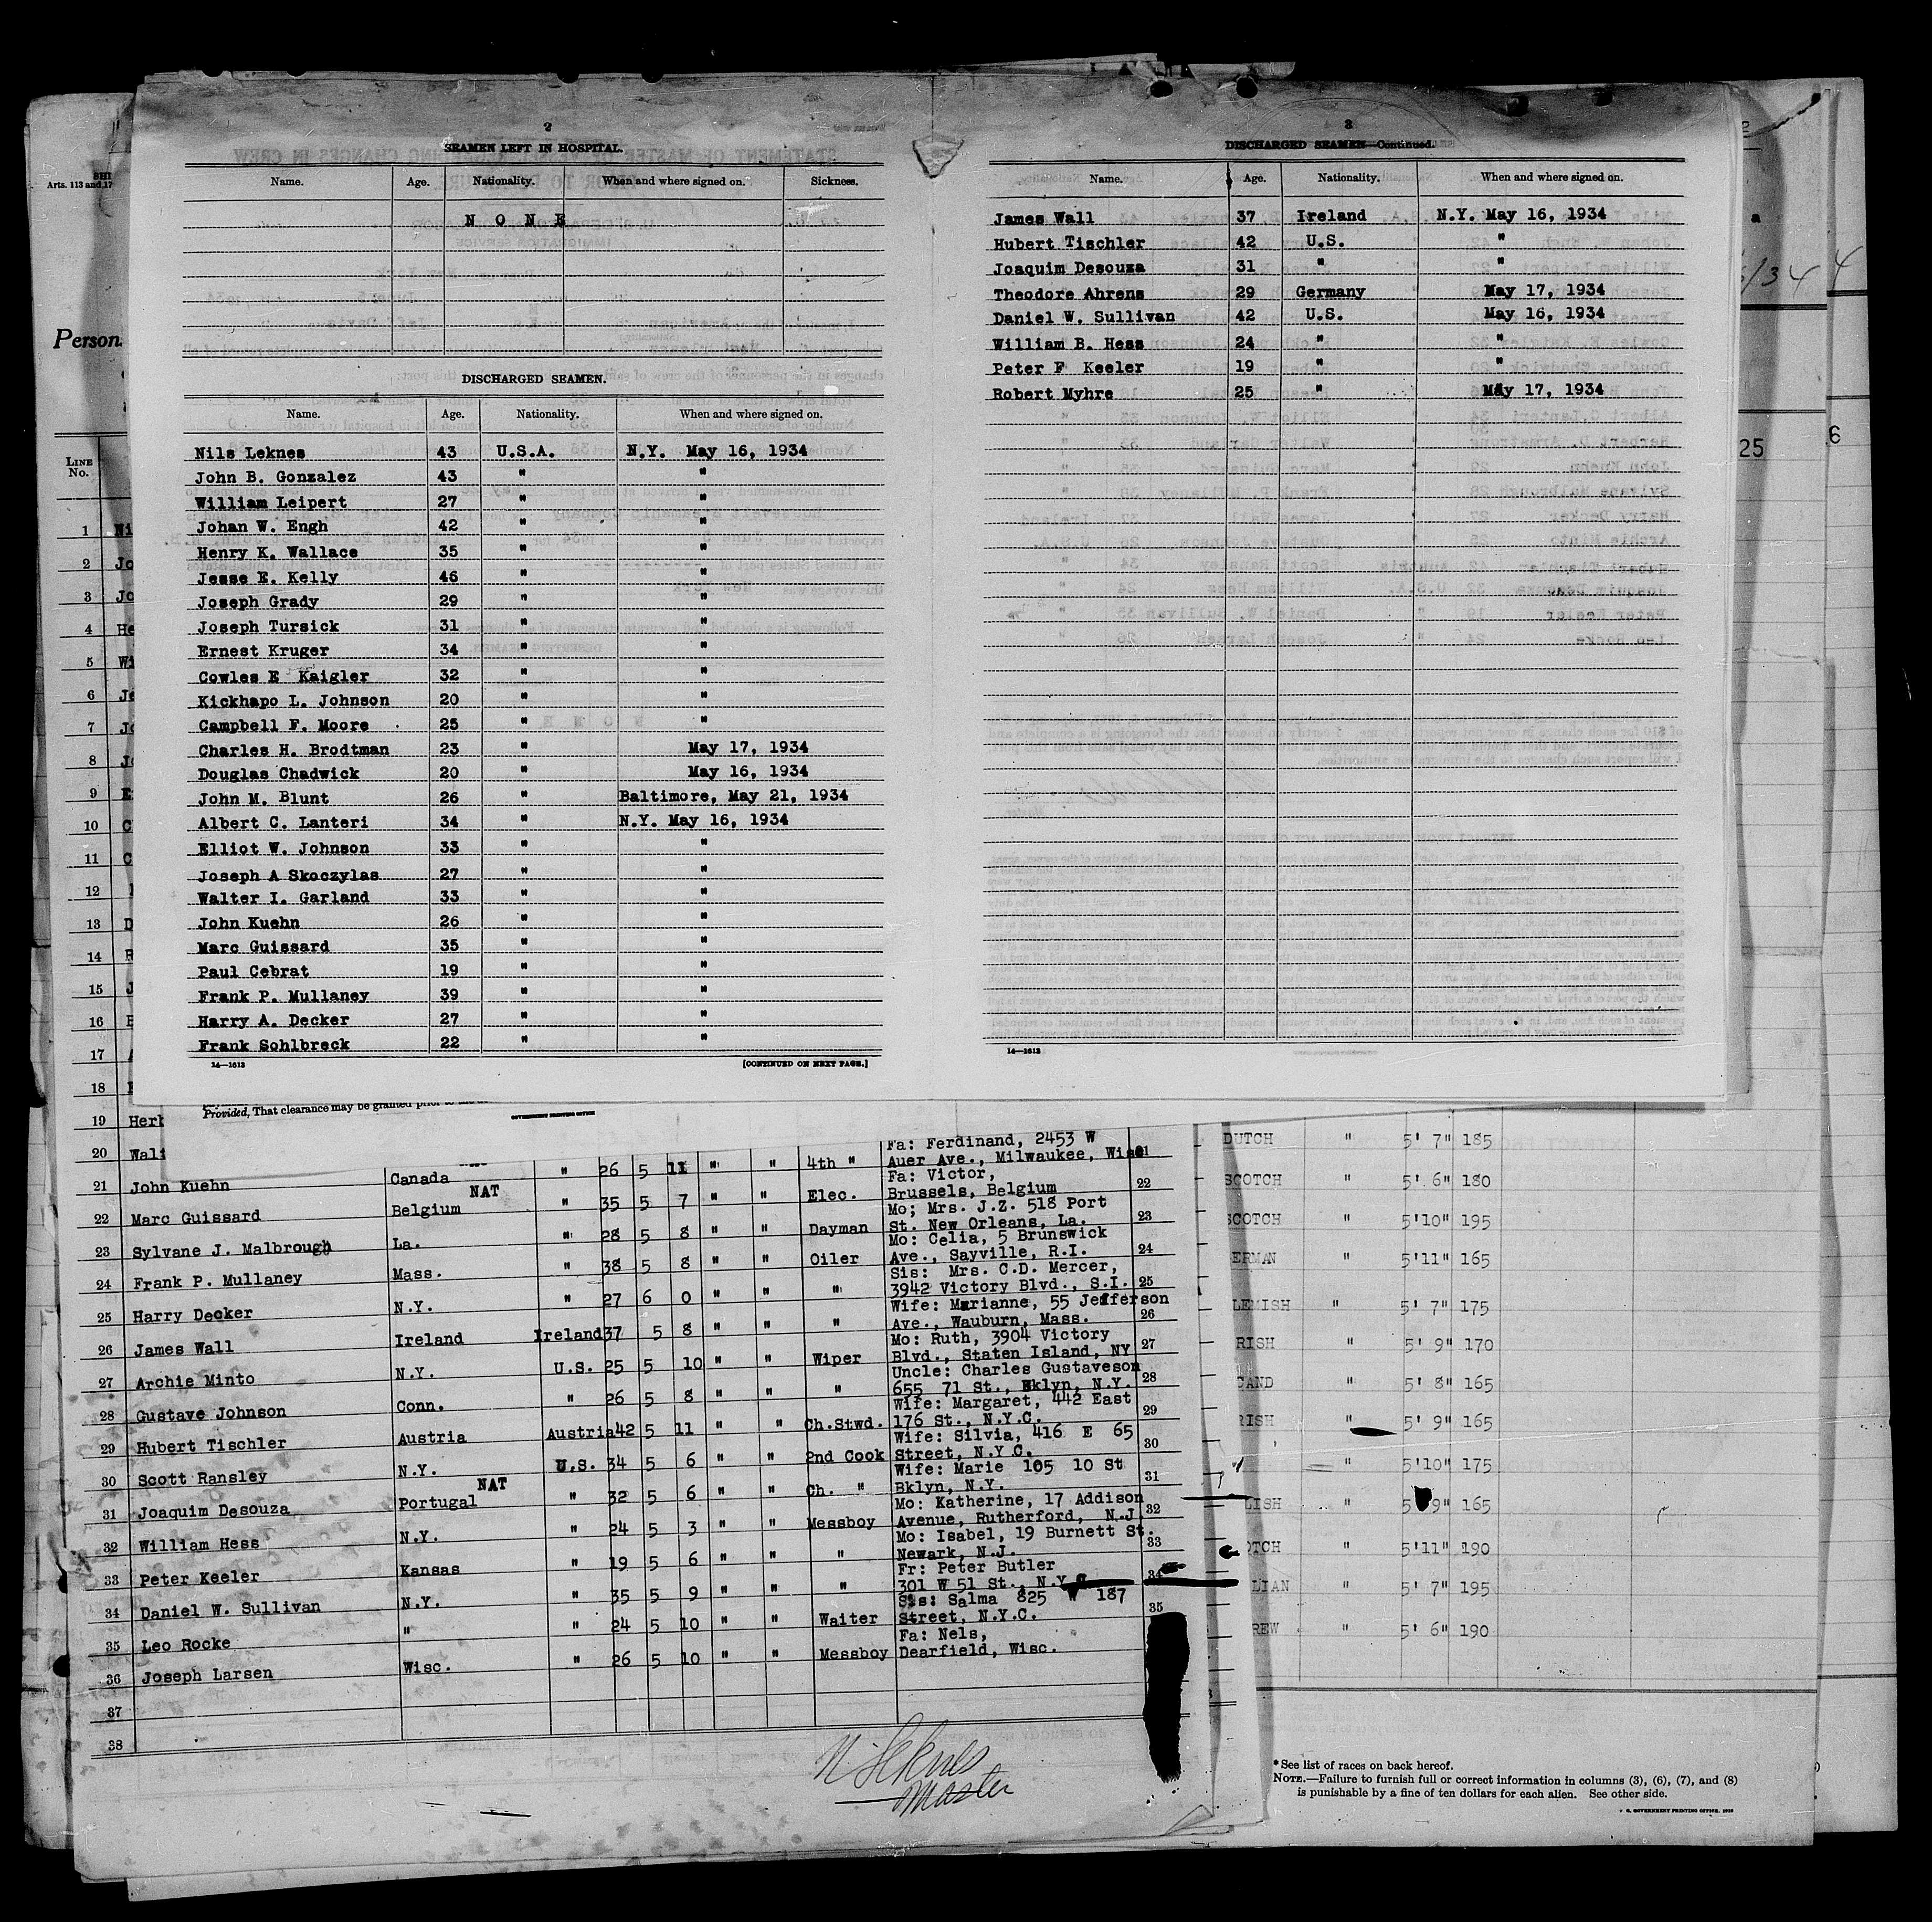 2
SEAMEN LEFT IN HOSPITAL.
Name. Age. Nationality. When and where signed on. Sickness.
N O N E
DISCHARGED SEAMEN.
Name. Age. Nationality. When and where signed on.
Nils Leknes 43 U.S.A. N.Y. May 16, 1934
John B. Gonzalez 43 " "
William Leipert 27 " "
Johan W. Engh 42 " "
Henry K. Wallace 35 " "
Jesse E. Kelly 46 " "
Joseph Grady 29 " "
Joseph Tursick 31 " "
Ernest Kruger 34 " "
Cowles E Kaigler 32 " "
Kickhapo L. Johnson 20 " "
Campbell F. Moore 25 " "
Charles H. Brodtman 23 " May 17, 1934
Douglas Chadwick 20 " May 16, 1934
John M. Blunt 26 " Baltimore, May 21, 1934
Albert C. Lanteri 34 " N.Y. May 16, 1934
Elliot W. Johnson 33 " "
Joseph A Skoczylas 27 " "
Walter I. Garland 33 " "
John Kuehn 26 " "
Marc Guissard 35 " "
Paul Cebrat 19 " "
Frank P. Mullaney 39 " "
Harry A. Decker 27 " "
Frank Sohlbreck 22 " "
14—1613 [CONTINUED ON NEXT PAGE.]
3
DISCHARGED SEAMEN—Continued.
Name. Age. Nationality. When and where signed on.
James Wall 37 Ireland N.Y. May 16, 1934
Hubert Tischler 42 U.S. "
Joaquim Desouza 31 " "
Theodore Ahrens 29 Germany May 17, 1934
Daniel W. Sullivan 42 U.S. May 16, 1934
William B. Hess 24 " "
Peter F Keeler 19 " "
Robert Myhre 25 " May 17, 1934
14—1613
Arts. 113 and 17
Person
LINE No.
1 Ni
2 Jo
3 Jo
4 He
5 Wi
6 Je
7 Jo
8 Jo
9 E
10 C
11 C
12
13 D
14 R
15 J
16
17
18
19 Herb
20 Walt
Provided, That clearance may be granted prior to
GOVERNMENT PRINTING OFFICE
Fa: Ferdinand, 2453 W
21 John Kuehn Canada " 26 5 11 " " 4th " Auer Ave., Milwaukee, Wisc 21
NAT Fa: Victor,
22 Marc Guissard Belgium " 35 5 7 " " Elec. Brussels, Belgium 22
Mo; Mrs. J.Z. 518 Port
23 Sylvane J. Malbrough La. " 28 5 8 " " Dayman St. New Orleans, La. 23
Mo: Celia, 5 Brunswick
24 Frank P. Mullaney Mass. " 38 5 8 " " Oiler Ave., Sayville, R.I. 24
Sis: Mrs. C.D. Mercer,
25 Harry Decker N.Y. " 27 6 0 " " " 3942 Victory Blvd., S.I. 25
Wife: Marianne, 55 Jefferson
26 James Wall Ireland Ireland 37 5 8 " " " Ave., Wauburn, Mass. 26
Mo: Ruth, 3904 Victory
27 Archie Minto N.Y. U.S. 25 5 10 " " Wiper Blvd., Staten Island, NY 27
Uncle: Charles Gustaveson
28 Gustave Johnson Conn. " 26 5 8 " " " 655 71 St., Bklyn, N.Y. 28
Wife: Margaret, 442 East
29 Hubert Tischler Austria Austria 42 5 11 " " Ch.Stwd. 176 St., N.Y.C. 29
Wife: Silvia, 416 E 65
30 Scott Ransley N.Y. U.S. 34 5 6 " " 2nd Cook Street, N.Y.C. 30
NAT Wife: Marie 105 10 St
31 Joaquim Desouza Portugal " 32 5 6 " " Ch. " Bklyn, N.Y. 31
Mo: Katherine, 17 Addison
32 William Hess N.Y. " 24 5 3 " " Messboy Avenue, Rutherford, N.J. 32
Mo: Isabel, 19 Burnett St.
33 Peter Keeler Kansas " 19 5 6 " " " Newark, N.J. 33
Fr: Peter Butler
34 Daniel W. Sullivan N.Y. " 35 5 9 " " " 301 W 51 St., N.Y.C. 34
Sis: Salma 825 W 187
35 Leo Rocke " " 24 5 10 " " Waiter Street, N.Y.C. 35
Fa: Nels,
36 Joseph Larsen Wisc. " 26 5 10 " " Messboy Dearfield, Wisc.
37
38
N. Leknes
Master
2
a
/34 4
25 6
DUTCH " 5' 7" 185
SCOTCH " 5' 6" 180
SCOTCH " 5'10" 195
ERMAN " 5'11" 165
LEMISH " 5' 7" 175
RISH " 5' 9" 170
CAND " 5' 8" 165
RISH " 5' 9" 165
" 5'10" 175
LISH " 5' 9" 165
OTCH " 5'11" 190
LIAN " 5' 7" 195
REW " 5' 6" 190
*See list of races on back hereof.
NOTE.—Failure to furnish full or correct information in columns (3), (6), (7), and (8)
is punishable by a fine of ten dollars for each alien. See other side.